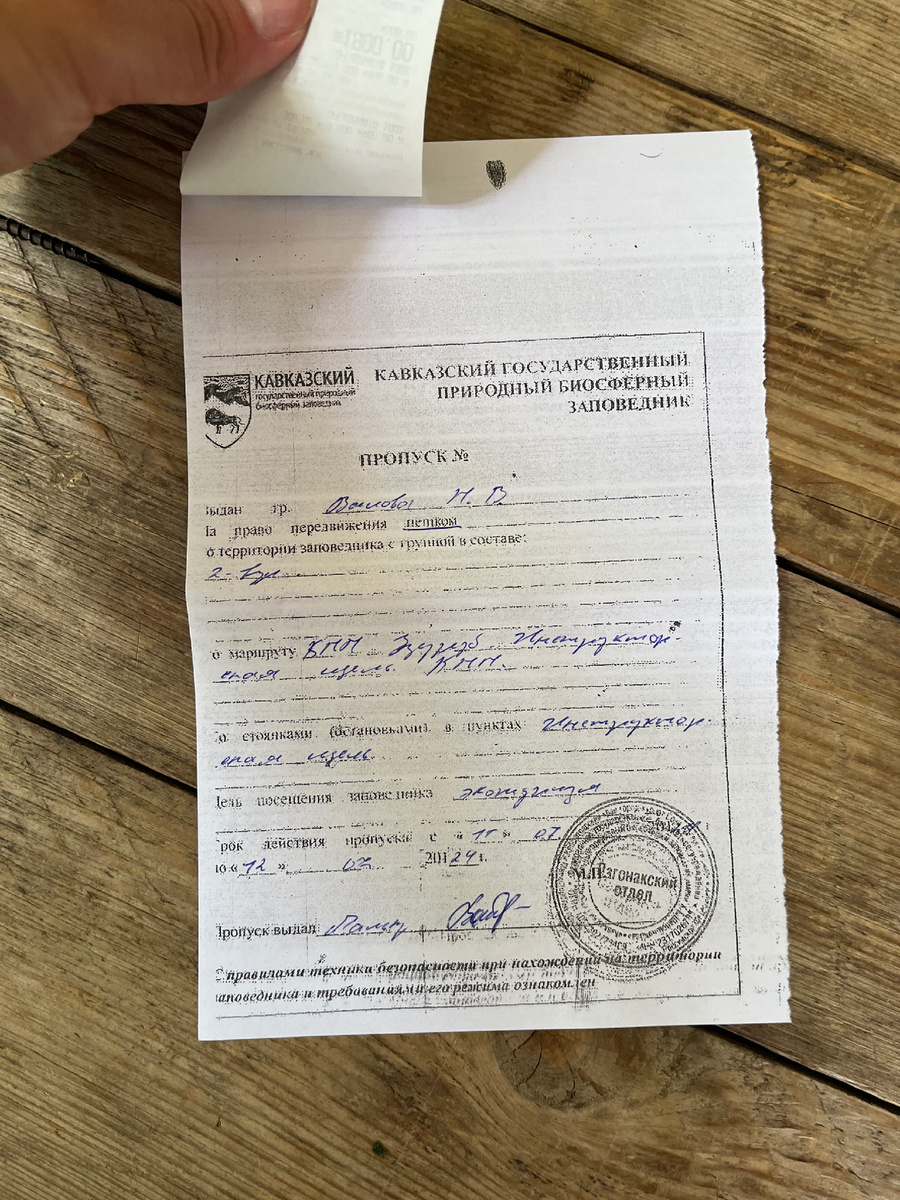 КАВКАЗСКИЙ
государственный природный
биосферный заповедник
КАВКАЗСКИЙ ГОСУДАРСТВЕННЫЙ
ПРИРОДНЫЙ БИОСФЕРНЫЙ
ЗАПОВЕДНИК
ПРОПУСК №
ыдан гр. Н. В.
а право передвижения пешком
о территории заповедника с группой в составе:
2-
о маршруту КПП Зубр Инструктор-
ская щель КПП
о стоянками (остановками) в пунктах Инструктор-
ская щель
Цель посещения заповедника экотуризм
рок действия пропуска с «11» 07
по «12» 07 20124 г.
Пропуск выдал
М.П.
отдел
С правилами техники безопасности при нахождении на территории
аповедника и требованиями его режима ознакомлен